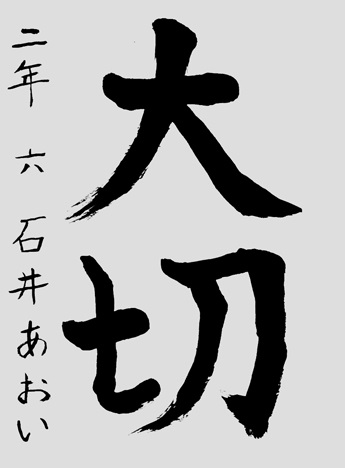 大切
二年 六 石井あおい